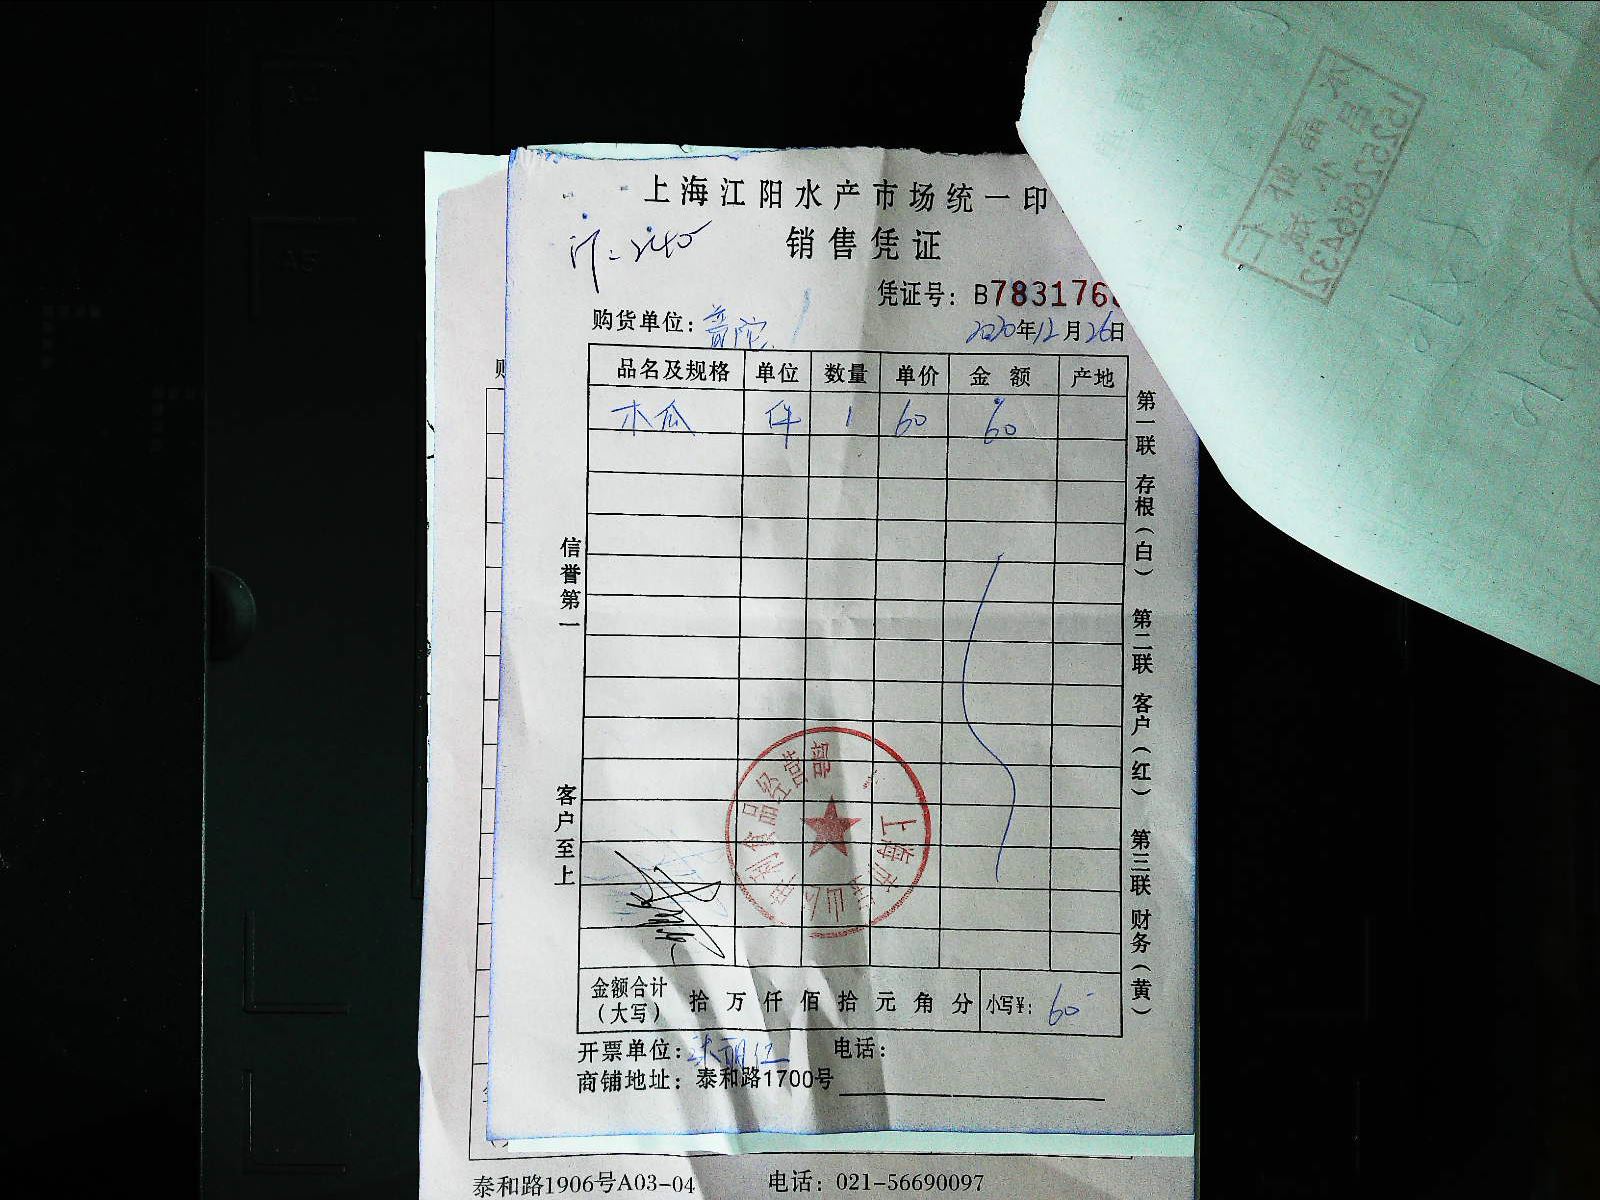 上海江阳水产市场统一印
销售凭证
凭证号：B783176
购货单位：普陀
2020年12月26日
品名及规格 单位 数量 单价 金额 产地
木瓜 件 1 60 60
信誉第一
客户至上
第一联 存根（白） 第二联 客户（红） 第三联 财务（黄）
食品经营部
上海
金额合计（大写） 拾 万 仟 佰 拾 元 角 分 小写¥：60
开票单位： 电话：
商铺地址：泰和路1700号
泰和路1906号A03-04 电话：021-56690097